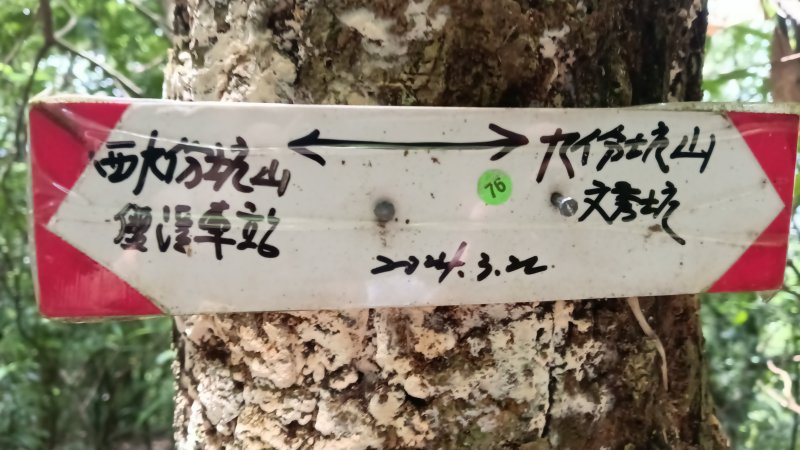 西大份坑山 ←→ 九份坑山
車站 文秀坑
76
2024.3.22